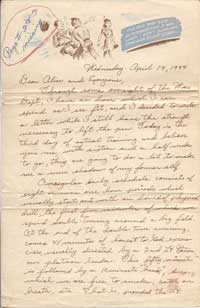 Wednesday - April 19, 1944
Dear Alice and Everyone,
Through some oversight of the War
Dept, I have an hour
spend as I see fit, and I decided to write
a letter while I still have the strength
necessary to lift the pen. Today is the
third day of actual training and believe
you me, with sixteen and a half weeks
to go, they are going to do a lot to make
me a mere shadow of my former self.
Our daily schedule consists of
eight or nine one hour periods which
usually start out with an hour of physical
drill, the first five minutes of which are
spent double timing around a big field.
At the end of the double time running,
comes 45 minutes of honest to God exercise,
usually directed by a 2nd Lt
our platoon leader. This fifty minutes
is followed by a ten minute break, during
which we are free to smoke,
breath etc. That is, around the